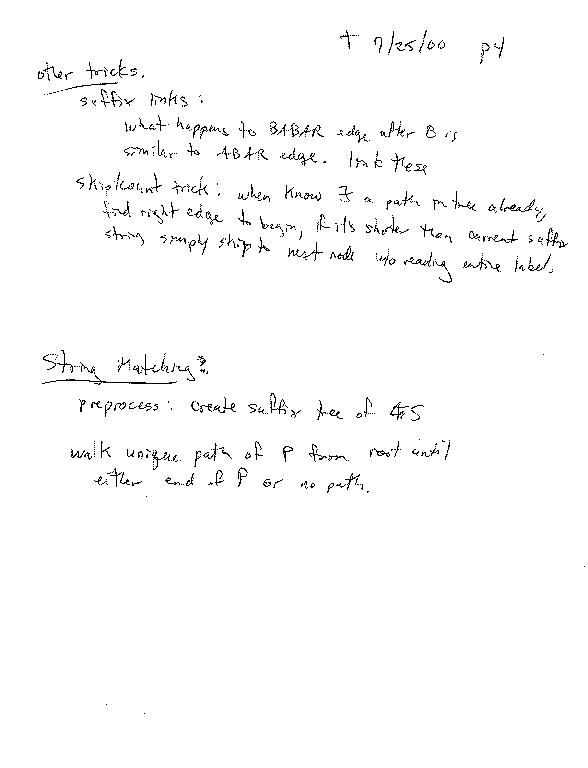 T 7/25/00 p4
other tricks.
suffix links:
what happens to BABAR edge after B is
similar to ABAR edge. link these
skip/count trick: when know ∃ a path in tree already,
find right edge to begin, if it's shorter than current suffix
string simply skip to next node w/o reading entire label.
String Matching:
preprocess: create suffix tree of S
walk unique path of P from root until
either end of P or no path.